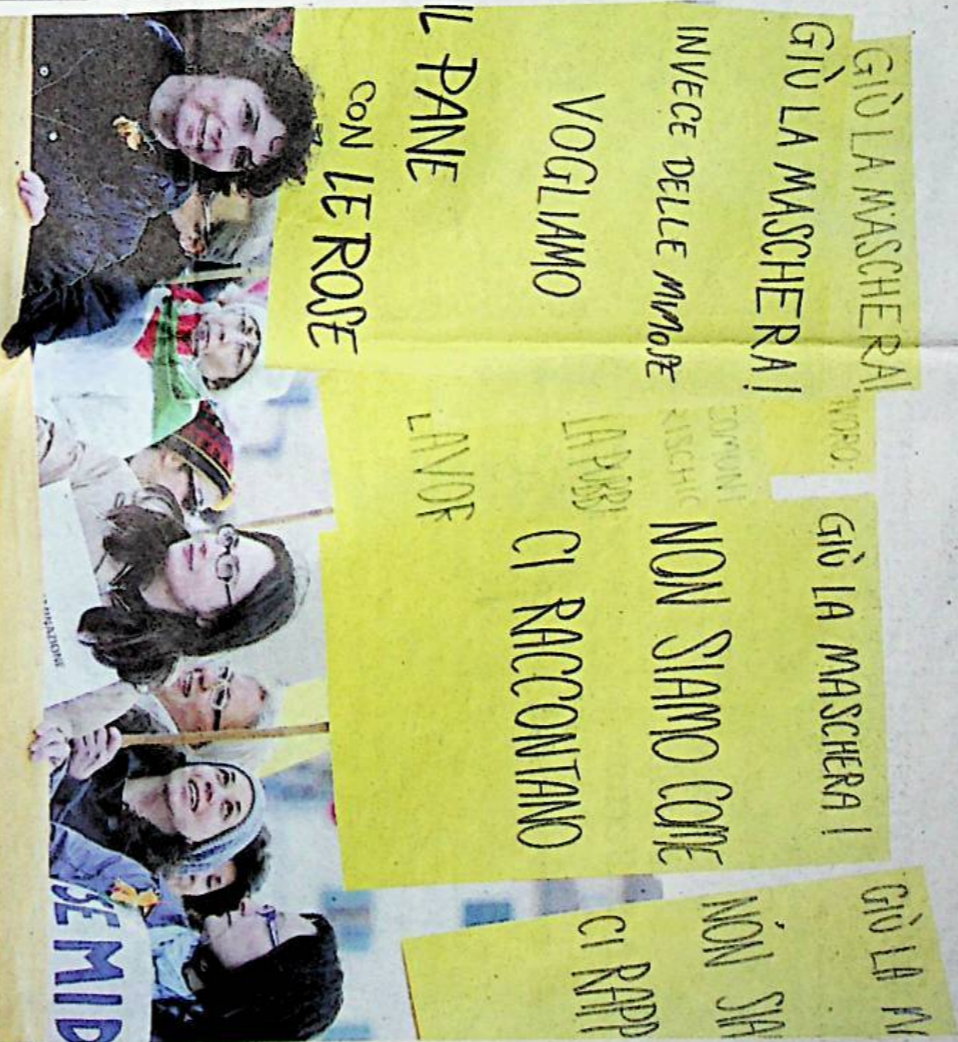 GIÙ LA MASCHERA!
GIÙ LA MASCHERA!
INVECE DELLE MIMOSE
VOGLIAMO
IL PANE
CON LE ROSE
LAVOR
GIÙ LA MASCHERA!
NON SIAMO COME
CI RACCONTANO
GIÙ LA M
NON SIA
CI RAPP
SE MI D